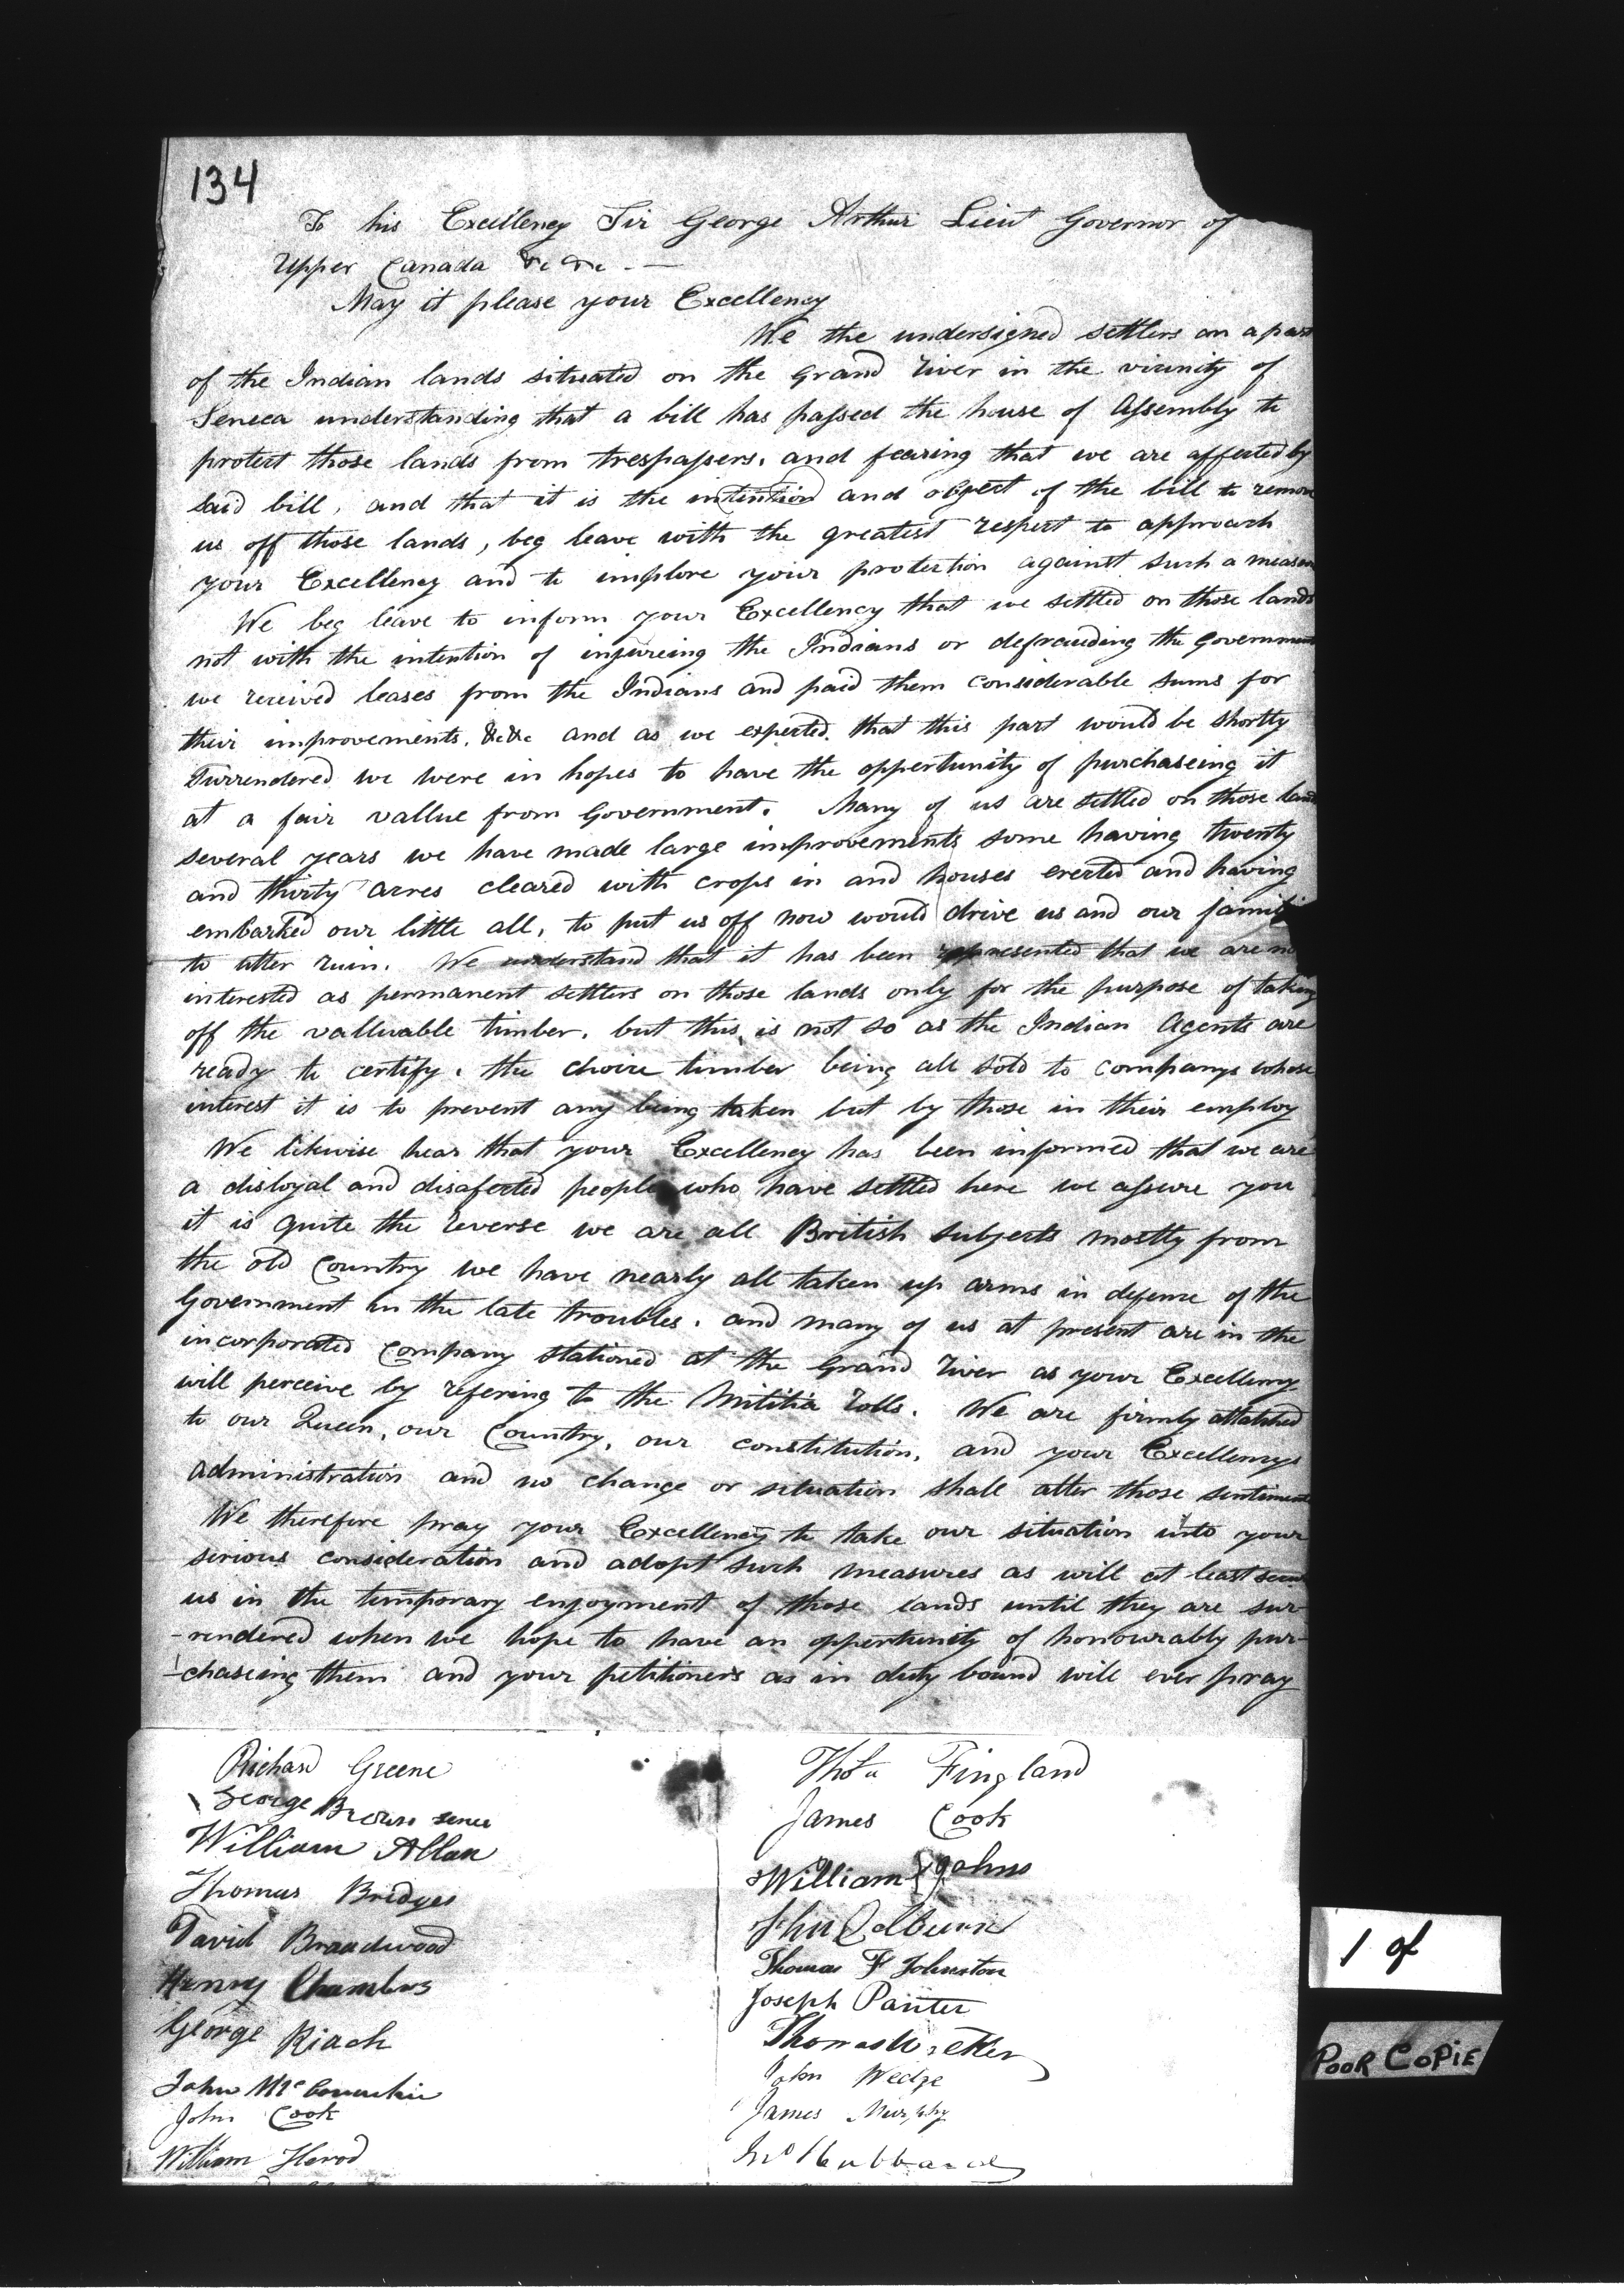 134
To his Excellency Sir George Arthur Lieut Governor of
Upper Canada &c &c —
May it please your Excellency
We the undersigned settlers on a part
of the Indian lands situated on the Grand River in the vicinity of
Seneca understanding that a bill has passed the house of Assembly to
protect those lands from trespassers, and fearing that we are affected by
said bill, and that it is the intention and object of the bill to remove
us off those lands, beg leave with the greatest respect to approach
your Excellency and to implore your protection against such a measure
We beg leave to inform your Excellency that we settled on those lands
not with the intention of injureing the Indians or defrauding the Government
we received leases from the Indians and paid them considerable sums for
their improvements, &c &c and as we expected that this part would be shortly
Surrendered we were in hopes to have the oppertunity of purchaseing it
at a fair vallue from Government. Many of us are settled on those lands
several years we have made large improvements some having twenty
and thirty acres cleared with crops in and houses erected and having
embarked our little all, to put us off now would drive us and our
to utter ruin. We understand that it has been represented that we are
interested as permanent settlers on those lands only for the purpose of taking
off the valluable timber, but this is not so as the Indian Agents are
ready to certify, the choice timber being all sold to companys whose
interest it is to prevent any being taken but by those in their employ
We likwise hear that your Excellency has been informed that we are
a disloyal and disafected people who have settled here we assure you
it is quite the reverse we are all British subjects mostly from
the old Country we have nearly all taken up arms in defence of the
Government in the late troubles, and many of us at present are in the
incorporated Company stationed at the Grand River as your Excellency
will perceive by refering to the Militia Rolls. We are firmly attatched
to our Queen, our Country, our constitution, and your Excellencys
administration and no change or situation shall alter those sentiments
We therefore pray your Excellency to take our situation into your
serious consideration and adopt such measures as will at least secure
us in the temporary enjoyment of those lands until they are sur-
-rendered when we hope to have an oppertunity of honourably pur-
-chaseing them and your petitioners as in duty bound will ever pray
Richard Greene
George Brown
William Allan
Thomas Bridges
David Broadwood
Henry Chambers
George Riach
John
John Cook
William Herod
Fingland
James Cook
William Johns
John Colburn
Thomas F Johnston
Joseph Panter
Thomas
John Wedge
James Murphy
Jno Hubbard
1 of
POOR COPIE